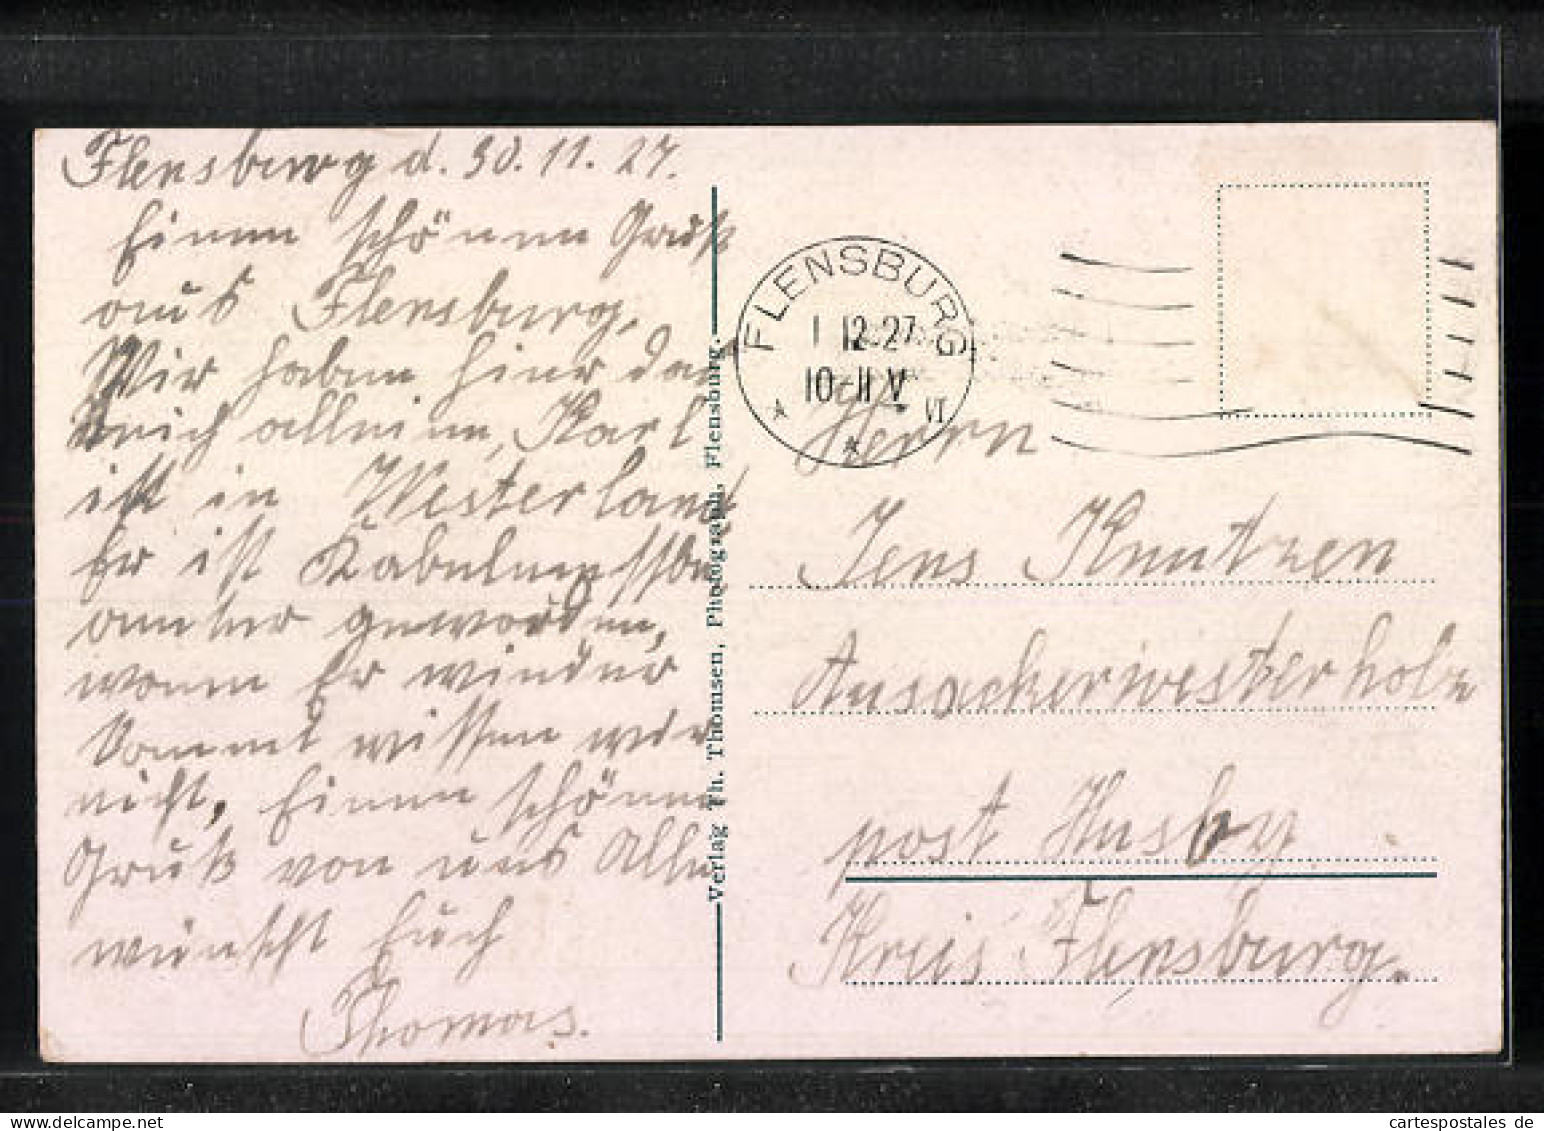 Flensburg d. 30.11.27.
Einen schönen Gruß
aus Flensburg,
Wir haben hier das
Reich allein, Karl
ist in Westerland
Er ist
geworden,
wann Er wieder
kommt wissen wir
nicht, Einen schönen
Gruß von uns Alle
wünscht Euch
Thomas.
Verlag Th. Thomsen, Photograph, Flensburg.
FLENSBURG
1 12.27
10-11 V
VI
Herrn
Jens Knutzen
Ausackerwesterholz
post Husby
Kreis Flensburg.
cartespostales de